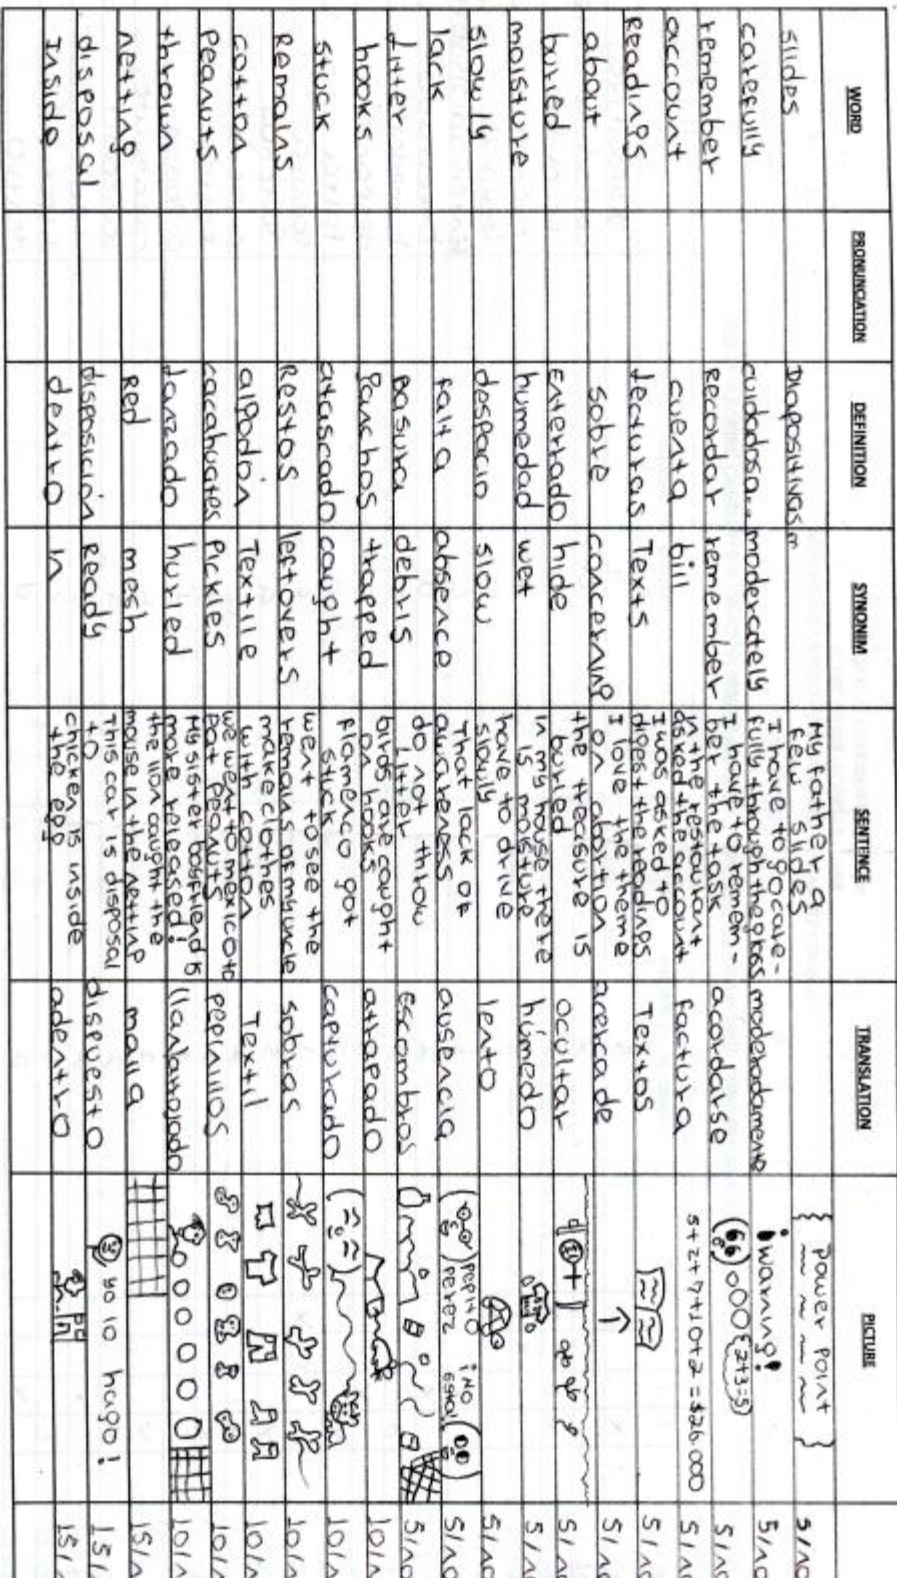 WORD PRONUNCIATION DEFINITION SYNONIM SENTENCE TRANSLATION PICTURE
slides Diapositivas My father a few slides { Power Point } 5/no
carefully cuidadosa.. moderately I have to go carefully through the moderadamente ¡warning! 5/no
remember Recordar remember I have to remem- ber the task acordarse 2+3=5 5/no
account cuenta bill in the restaurant asked the account factura 5+2+7+10+2=$26.000 5/no
Readings lecturas Texts I was asked to digest the readings Textos 5/no
about sobre concerning I love the theme on abortion acercade 5/no
buried Enterrado hide the treasure is buried ocultar 5/no
moisture humedad wet in my house there is moisture húmedo 5/no
slowly despacio slow have to drive slowly lento 5/no
lack falta absence That lack of awareness ausencia pepito perez ¡No 5/no
Litter Basura debris do not throw litter Escombros 5/no
hooks Ganchos trapped birds are caught on hooks atrapado 10/n
stuck atascado caught flamenco got stuck capturado 10/n
Remans Restos leftovers went to see the remains of my uncle sobras 10/n
cotton algodón Textile with cotton make clothes Textil 10/n
peanuts cacahuates Pickles we went to mexico to eat peanuts pepinillos 10/n
thrown Lanzado hurled My sister boyfriend is more released! 10/n
netting Red mesh the lion caught the mouse in the netting malla 15/n
disposal disposición Ready This car is disposal to dispuesto yo lo hago! 15/n
Inside dentro in chicken is inside the egg adentro 15/n